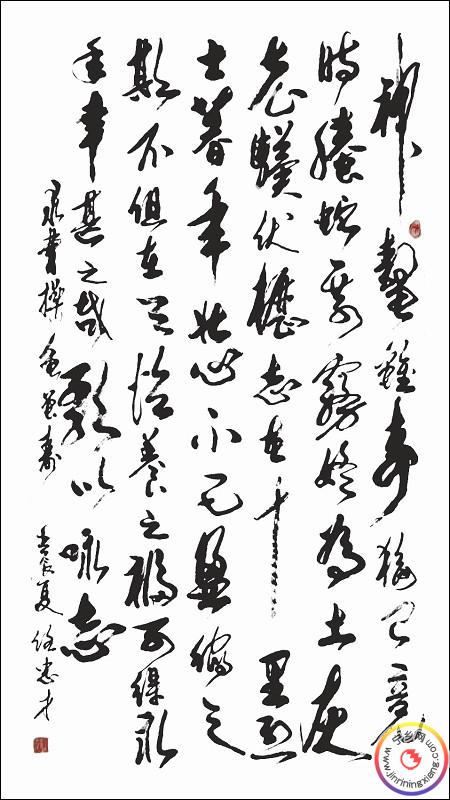 神龜雖壽猶有竟
時騰蛇乘霧終為土灰
老驥伏櫪志在千里烈
士暮年壯心不已盈縮之
期不但在天怡養之福可得永
年幸甚至哉歌以咏志
录曹操龜雖壽 壬辰夏
www.jinriningxiang.com